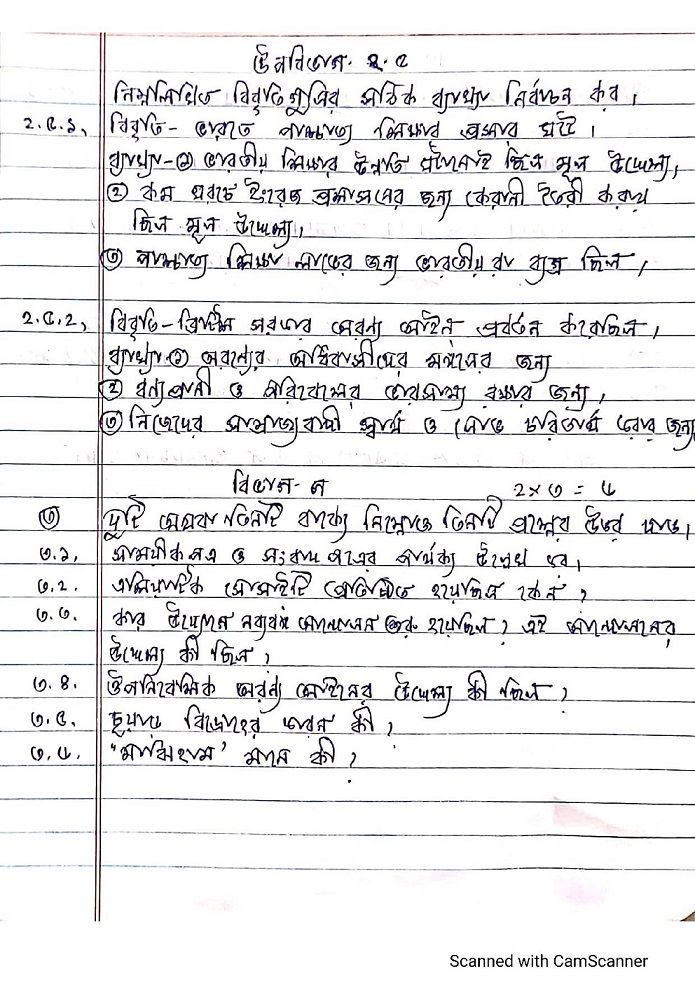 উপবিভাগ- ২.৫
নিম্নলিখিত বিবৃতিগুলির সঠিক ব্যাখ্যা নির্বাচন কর।
২.৫.১, বিবৃতি- ভারতে পাশ্চাত্য শিক্ষার প্রসার ঘটে।
ব্যাখ্যা-① ভারতীয় শিক্ষার উন্নতি ঘটানোই ছিল মূল উদ্দেশ্য,
② কম খরচে ইংরেজ প্রশাসনের জন্য কেরানী তৈরী করায়
ছিল মূল উদ্দেশ্য,
③ পাশ্চাত্য শিক্ষা লাভের জন্য ভারতীয়রা ব্যগ্র ছিল,
২.৫.২, বিবৃতি-ব্রিটিশ সরকার অরণ্য আইন প্রবর্তন করেছিল,
ব্যাখ্যা-① অরণ্যের অধিবাসীদের মঙ্গলের জন্য
② বন্যপ্রাণী ও পরিবেশের ভারসাম্য রক্ষার জন্য,
③ নিজেদের সাম্রাজ্যবাদী স্বার্থ ও লোভ চরিতার্থ করার জন্য
বিভাগ-গ ২x৩ = ৬
③ দুটি অথবা তিনটি বাক্যে নিম্নোক্ত তিনটি প্রশ্নের উত্তর দাও।
৩.১, সাময়ীকপত্র ও সংবাদপত্রের পার্থক্য উল্লেখ কর,
৩.২. এশিয়াটিক সোসাইটি প্রতিষ্ঠিত হয়েছিল কেন?
৩.৩. কার উদ্যোগে নব্যবঙ্গ আন্দোলন শুরু হয়েছিল? এই আন্দোলনের
উদ্দেশ্য কী ছিল?
৩.৪. ঔপনিবেশিক অরণ্য আইনের উদ্দেশ্য কী ছিল?
৩.৫. চুয়াড় বিদ্রোহের কারন কী?
৩.৬. 'মাঝিহাম' মানে কী?
Scanned with CamScanner